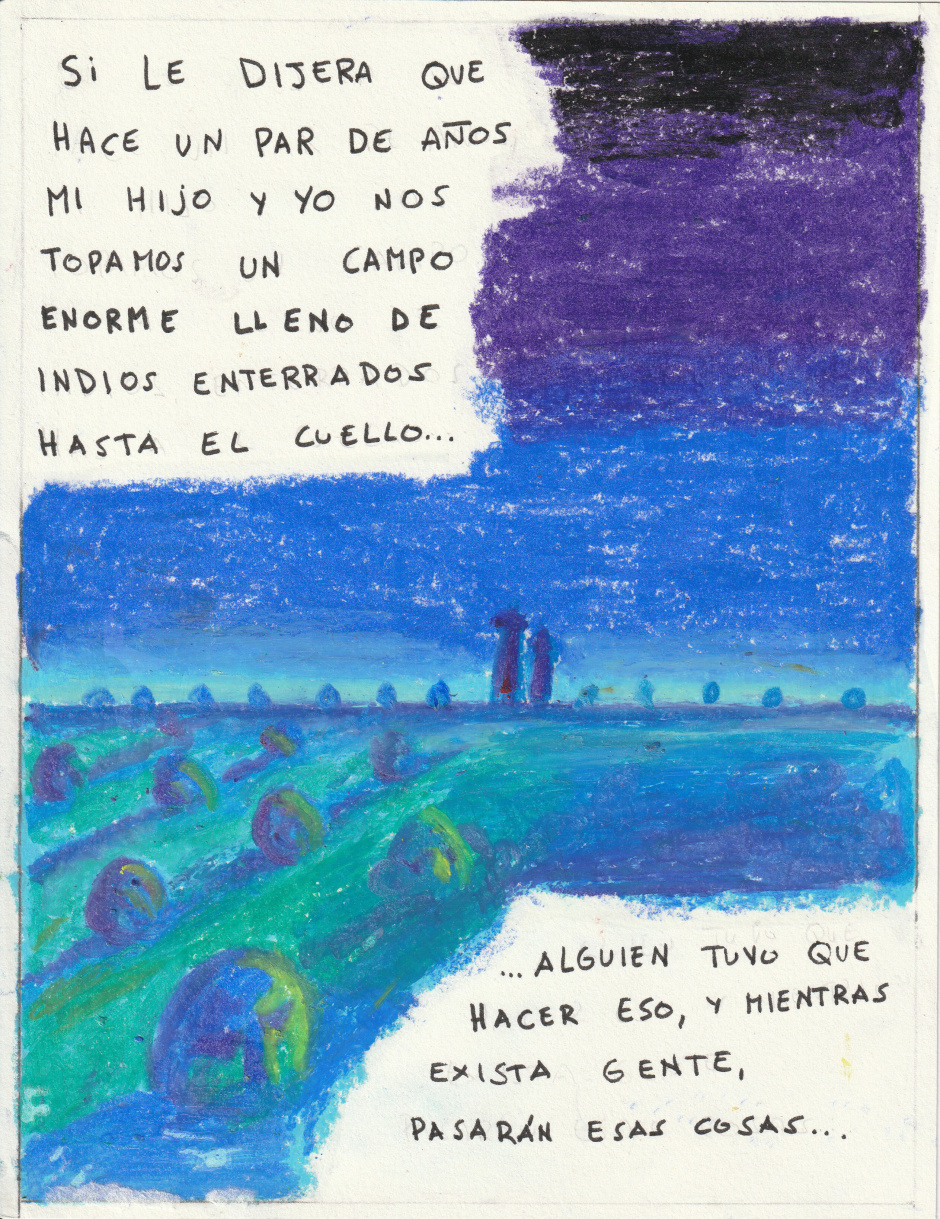 Si LE DIJERA QUE
HACE UN PAR DE AÑOS
MI HIJO Y YO NOS
TOPAMOS UN CAMPO
ENORME LLENO DE
INDIOS ENTERRADOS
HASTA EL CUELLO...
...ALGUIEN TUVO QUE
HACER ESO, Y MIENTRAS
EXISTA GENTE,
PASARÁN ESAS COSAS...